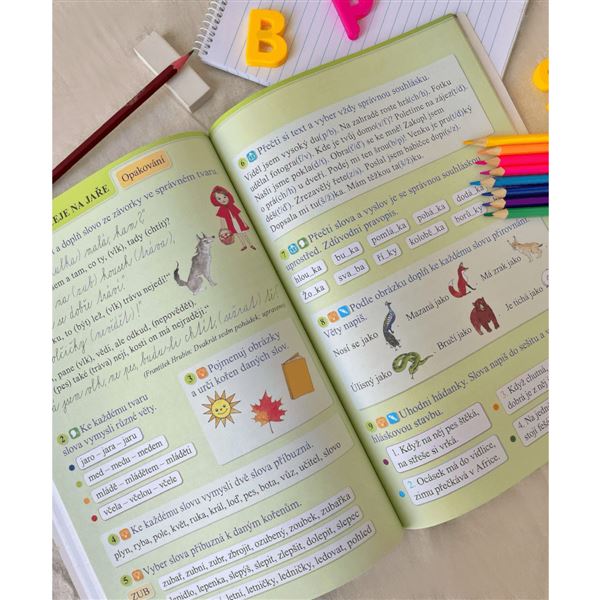 B
P
S
EJE NA JAŘE
Opakování
a doplň slovo ze závorky ve správném tvaru.
em a tam, co ty, (vlk), tady (chtít)?
ku, to (být) lež, (vlk) trávu nejedí!“
, pane (vlk), vědí, ale odkud, (nepovědět).
(pes) také (tráva) nejí, kosti on má nejraději.“
(František Hrubín: Dvakrát sedm pohádek, upraveno)
2 Ke každému tvaru
slova vymysli různé věty.
jaro – jara – jaru
med – medu – medem
mládě – mládětem – mládětí
včela – včelou – včele
3 Pojmenuj obrázky
a urči kořen daných slov.
4 Ke každému slovu vymysli dvě slova příbuzná.
plyn, ryba, pole, květ, ruka, král, loď, pes, bota, vůz, učitel, slovo
5 Vyber slova příbuzná k daným kořenům.
ZUB
zubař, zubní, zubr, zbrojit, ozubený, zoubek, zubařka
lepidlo, lepenka, slepýš, slepit, zlepšit, dolepit, slepec
letní, letničky, ledničky, ledovat, pohled
6 Přečti si text a vyber vždy správnou souhlásku.
Viděl jsem vysoký du(p/b). Na zahradě roste hrá(ch/h). Fotku
udělal fotogra(f/v). Kde je tvůj domo(v/f)? Poletíme na zájez(t/d).
Našli jsme pokla(d/t). Obra(ť/ď) se ke mně! Zakopl jsem
o prá(ch/h) u dveří. Podej mi ten šrou(b/p)! Venku je pru(t/d)ký
déš(ť/d). Zrezavělý řetě(s/z). Poslal jsem babičce dopi(s/z).
Dopsala mi tu(š/ž)ka. Mám těžkou ta(š/ž)ku.
7 Přečti slova a vyslov je se správnou souhláskou
uprostřed. Zdůvodni pravopis.
hlou_ka
bu_ka
pomla_ka
pohá_ka
doda_ka
Žo_ka
sva_ba
ři_ky
kolobě_ka
borů_ky
8 Podle obrázku doplň ke každému slovu přirovnání.
Věty napiš.
Nosí se jako
Mazaná jako
Má zrak jako
Úlisný jako
Bručí jako
Je tichá jako
9 Uhodni hádanky. Slova napiš do sešitu a v
hláskovou stavbu.
1. Když na něj pes štěká,
na střeše si vrká.
2. Ocásek má do vidlice,
zimu přečkává v Africe.
3. Když chutná
dobrá je z něj
4. Na jedné
stojí